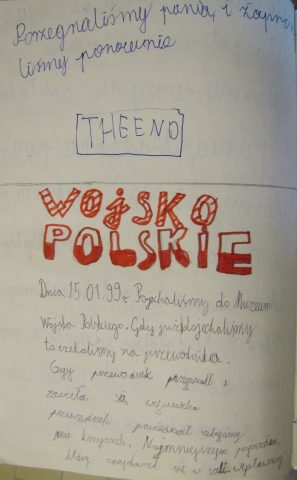 Pożegnaliśmy panią, i
liśmy ponownie
THE END
WOJSKO
POLSKIE
Dnia 15.01.99r Pojechaliśmy do Muzeum
Wojska Polskiego. Gdy już dojechaliśmy
to czekaliśmy na przewodnika.
Gdy przewodnik przyszedł i
zaczęła się wycieczka
przewodnik powiedział żebyśmy
nie krzyczeli. Najmniejszym
który znajdował się w sali wystawowej